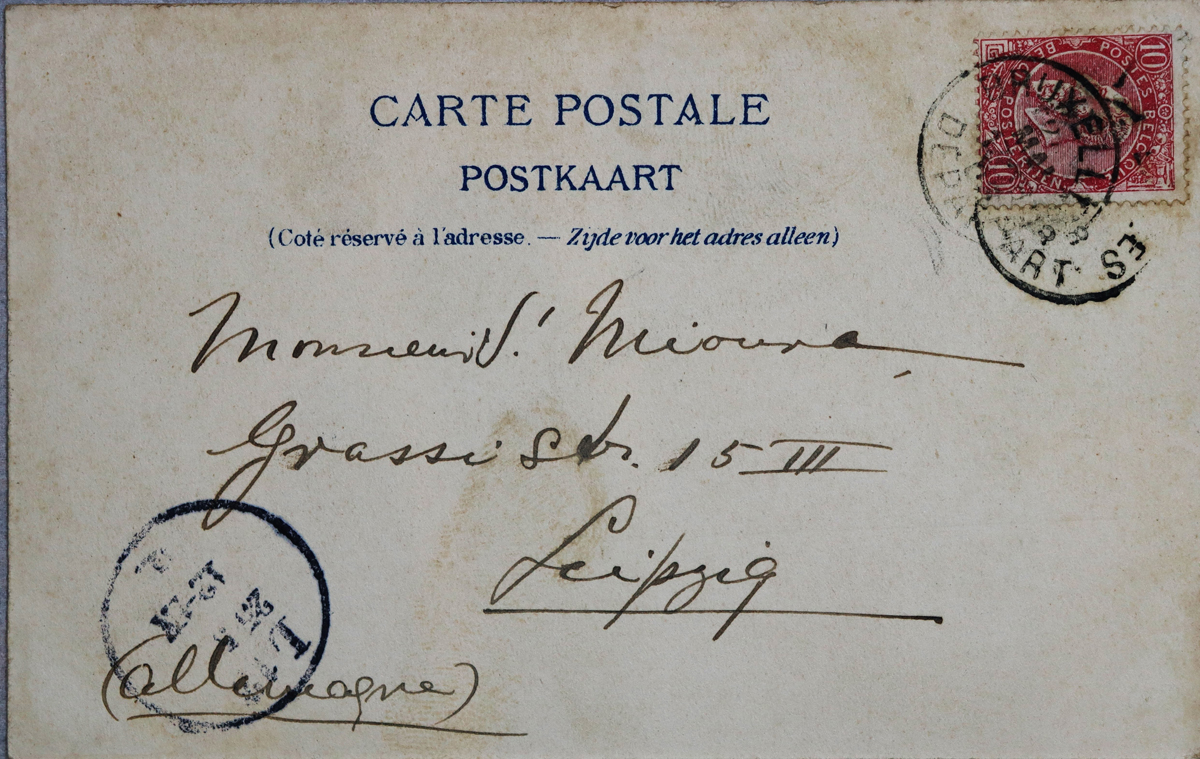 CARTE POSTALE
POSTKAART
(Coté réservé à l'adresse. — Zijde voor het adres alleen)
10 POSTES BELGIQUE 10
BRUXELLES
DEPART
Monsieur S. Mioura
Grassi Str. 15 III
Leipzig
(Allemagne)